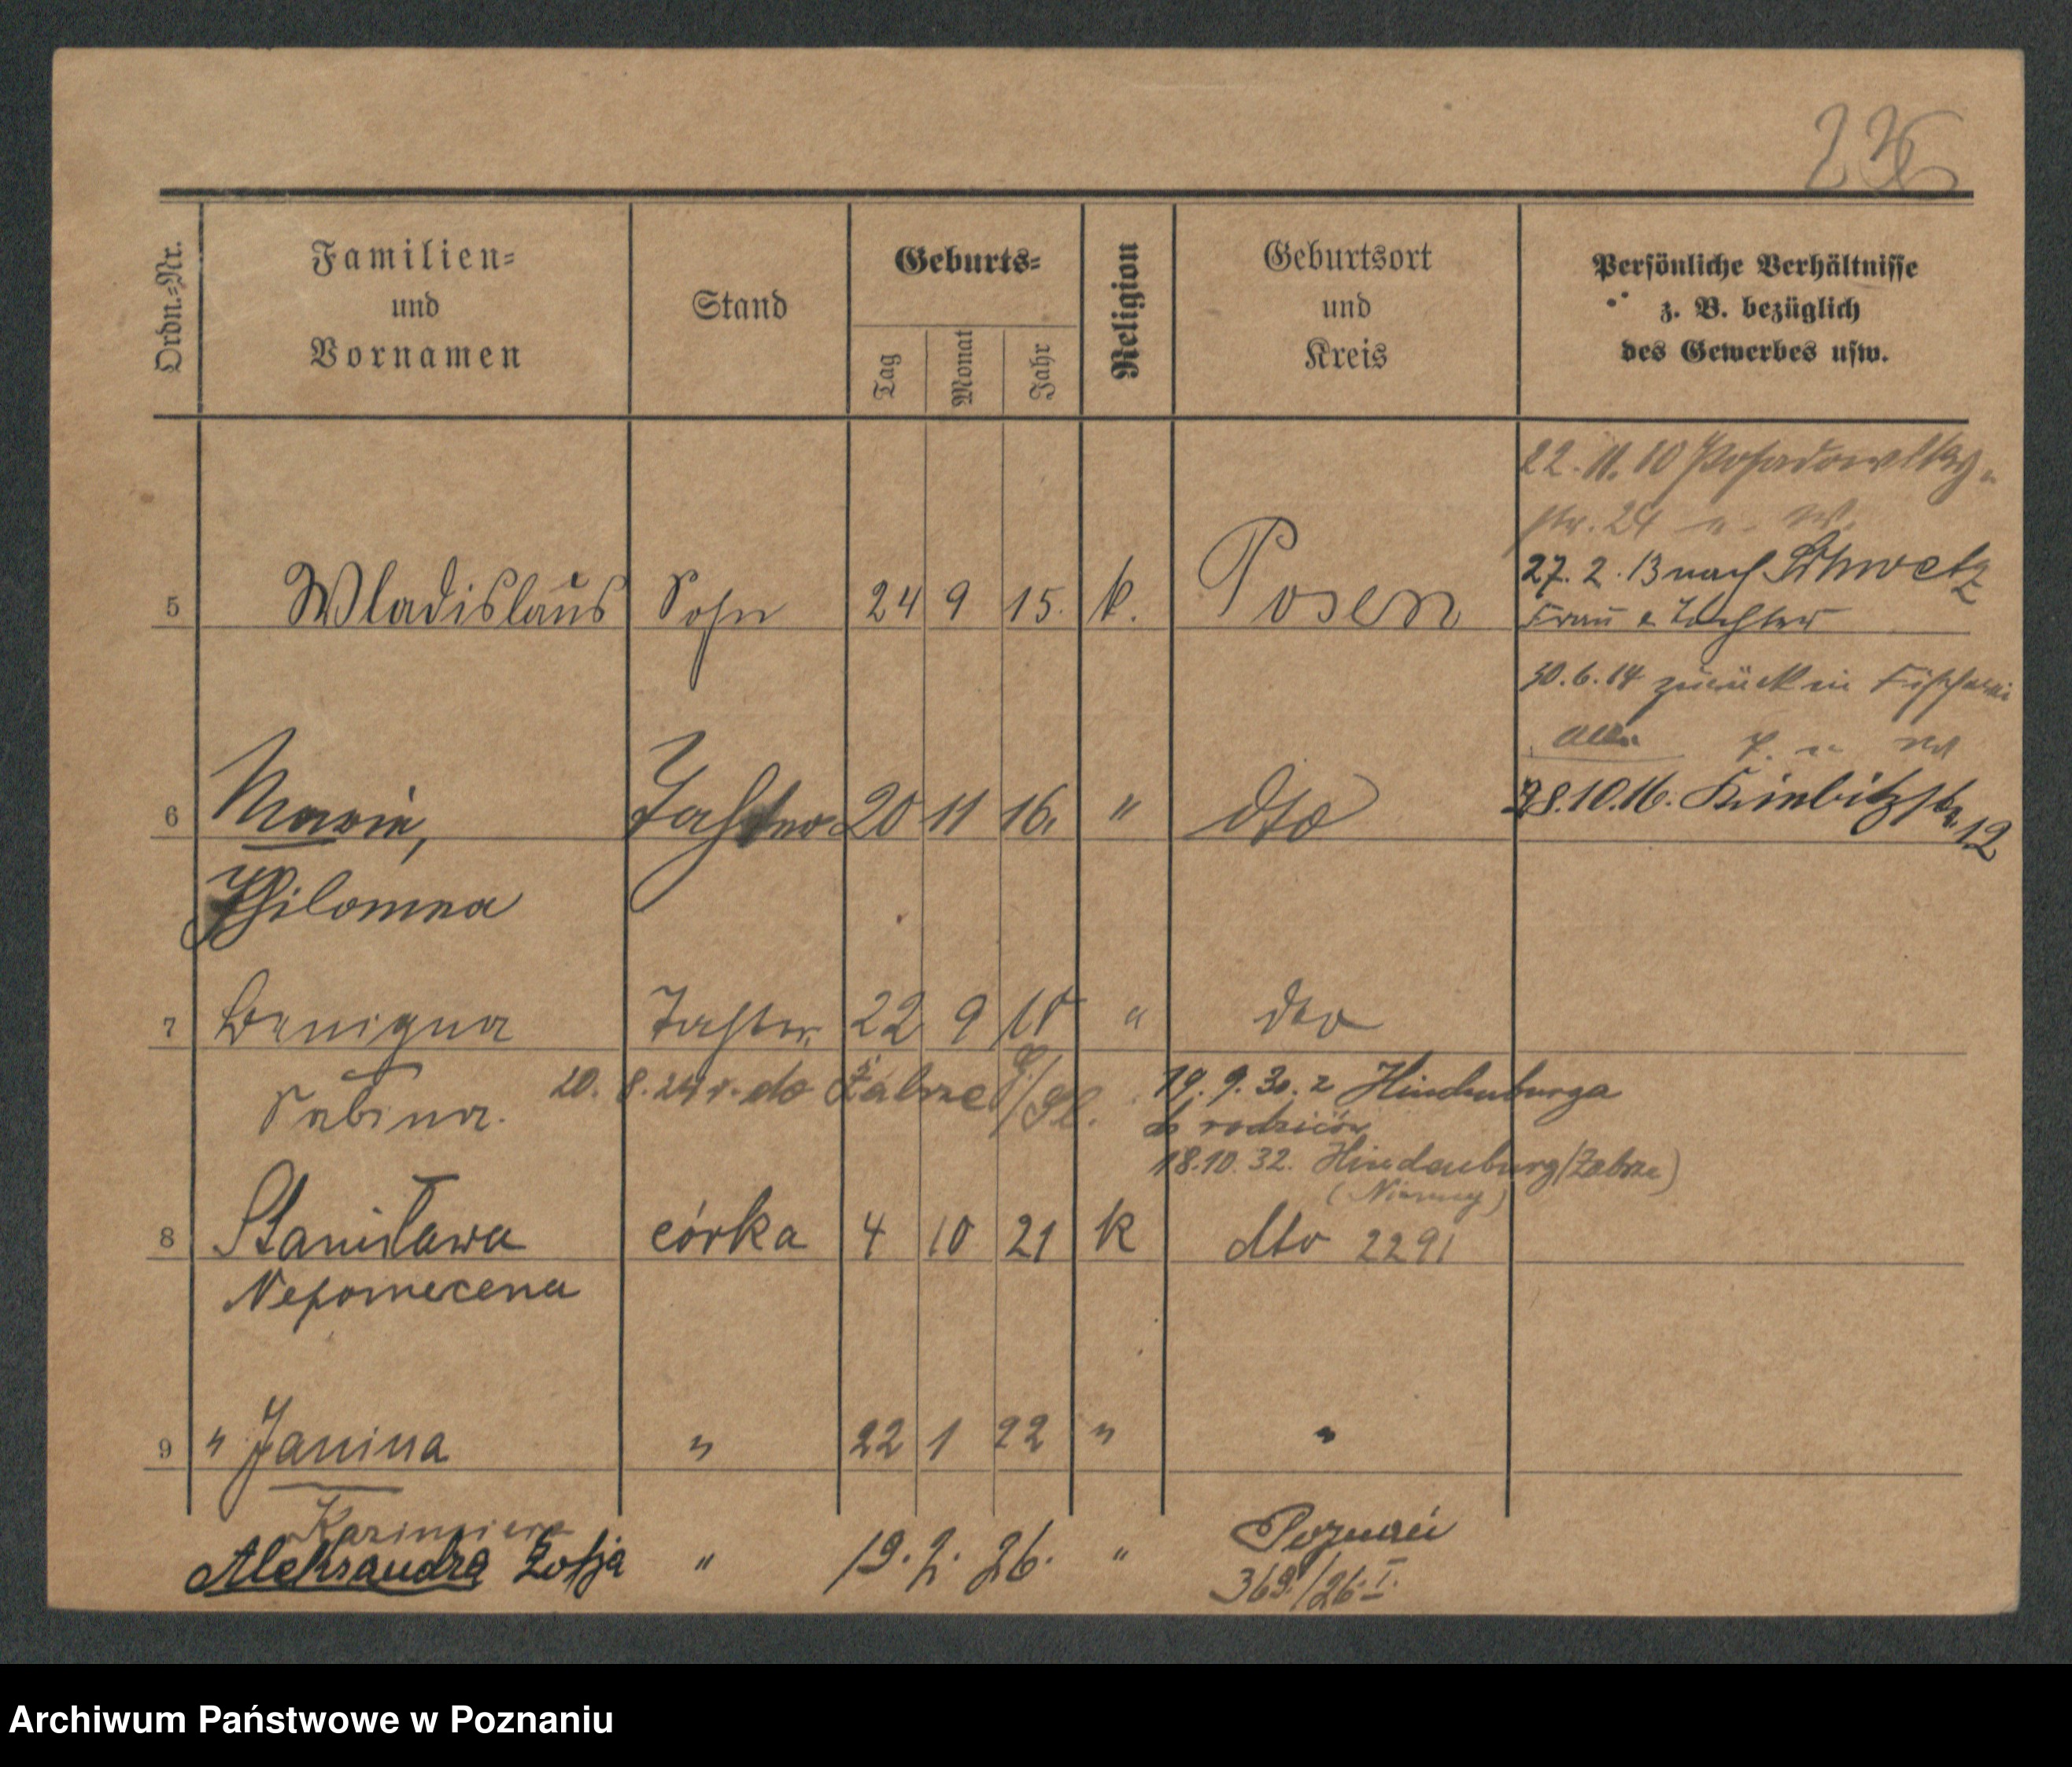 236
Ordn.-Nr.
Familien-
und
Vornamen
Stand
Geburts-
Tag
Monat
Jahr
Religion
Geburtsort
und
Kreis
Persönliche Verhältnisse
z. B. bezüglich
des Gewerbes usw.
22. 11. 10 Posadowsky-
str. 24 u. W.
27. 2. 13 nach Schwetz
Frau u Tochter
5 Wladislaus Sohn 24 9 15. k. Posen
30. 6. 14 zurück in Fischerei
28.10.16.
12
6 Maria, Tochter 20 11 16. " dto
Philomna
7 Benigna Tochter 22 9 " dto
Sabina. 20. 8. 24 r. do Zabrze G/Śl. 19. 9. 30. z Hindenburga
do rodziców
18.10.32. Hindenburg (Zabrze)
(Niemcy)
8 Stanisława córka 4 10 21 k dto 2291
Nepomecena
9 " Janina " 22 1 22 " "
Kazimiera
Aleksandra Zofja " 19. 2. 26. " Poznań
369/26 I.
Archiwum Państwowe w Poznaniu